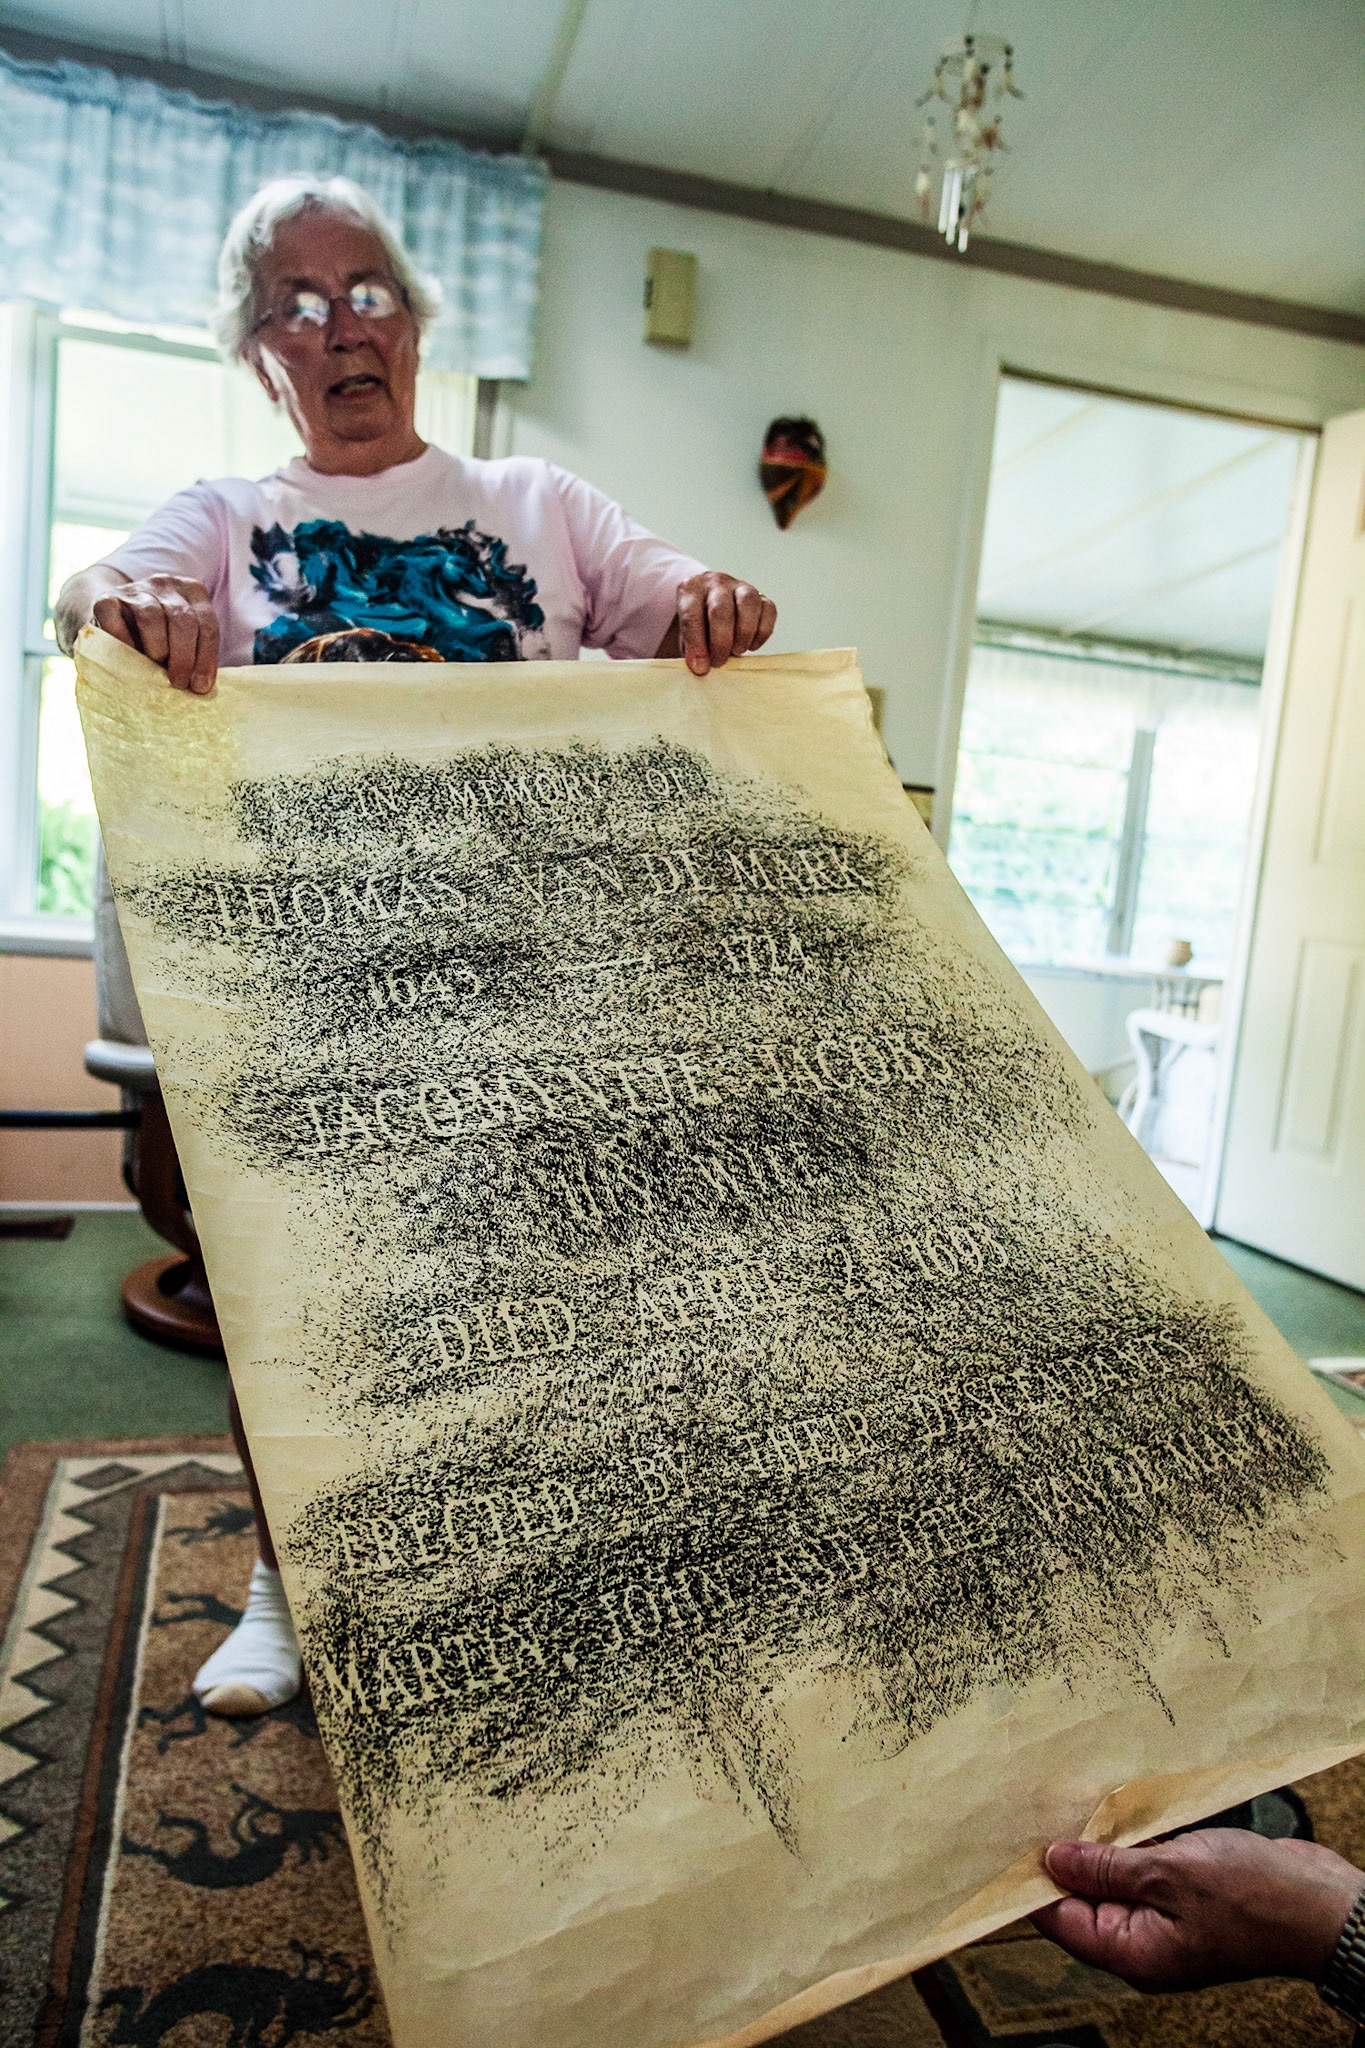 IN MEMORY OF
THOMAS VAN DE MARK
1648 — 1724
JACOMYNTJE JACOBS
HIS WIFE
DIED APRIL 2, 1693
ERECTED BY THEIR DESCENDANTS
MARTIN, JOHN AND VAN DE MARK